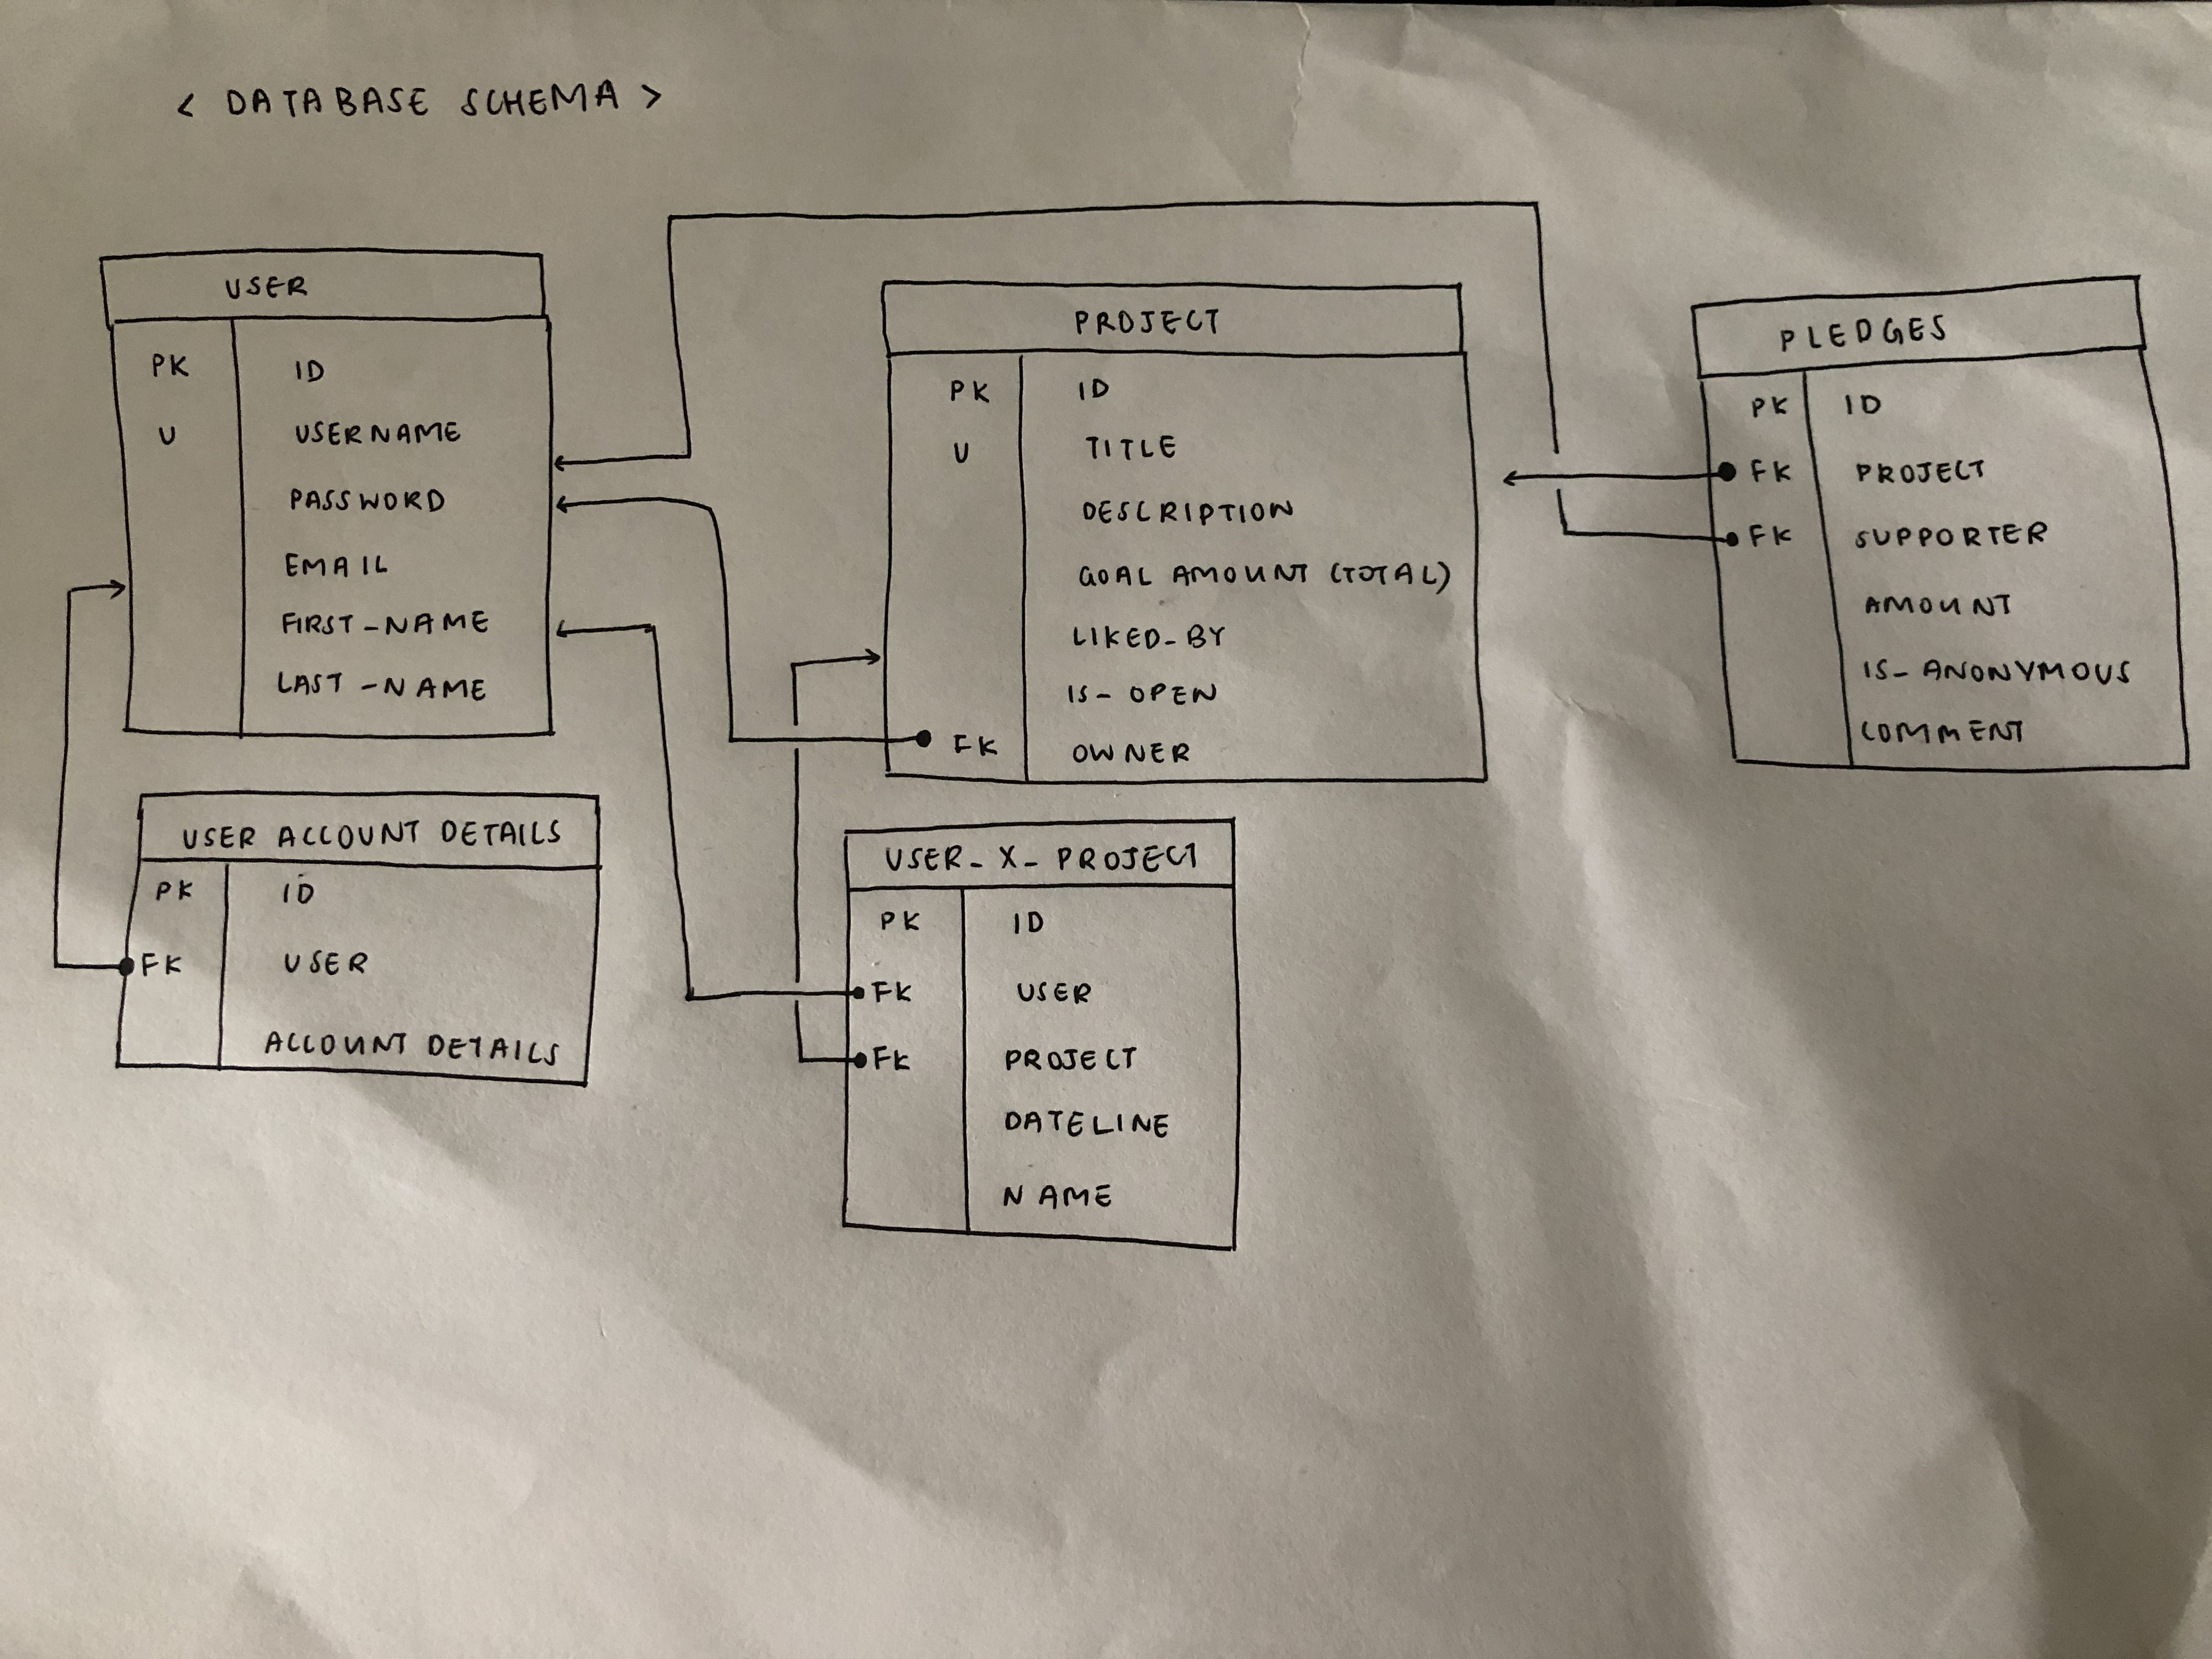 < DATABASE SCHEMA >
USER
PK ID
U USERNAME
PASSWORD
EMAIL
FIRST-NAME
LAST-NAME
USER ACCOUNT DETAILS
PK ID
FK USER
ACCOUNT DETAILS
PROJECT
PK ID
U TITLE
DESCRIPTION
GOAL AMOUNT (TOTAL)
LIKED-BY
IS-OPEN
FK OWNER
USER-X-PROJECT
PK ID
FK USER
FK PROJECT
DATELINE
NAME
PLEDGES
PK ID
FK PROJECT
FK SUPPORTER
AMOUNT
IS-ANONYMOUS
COMMENT